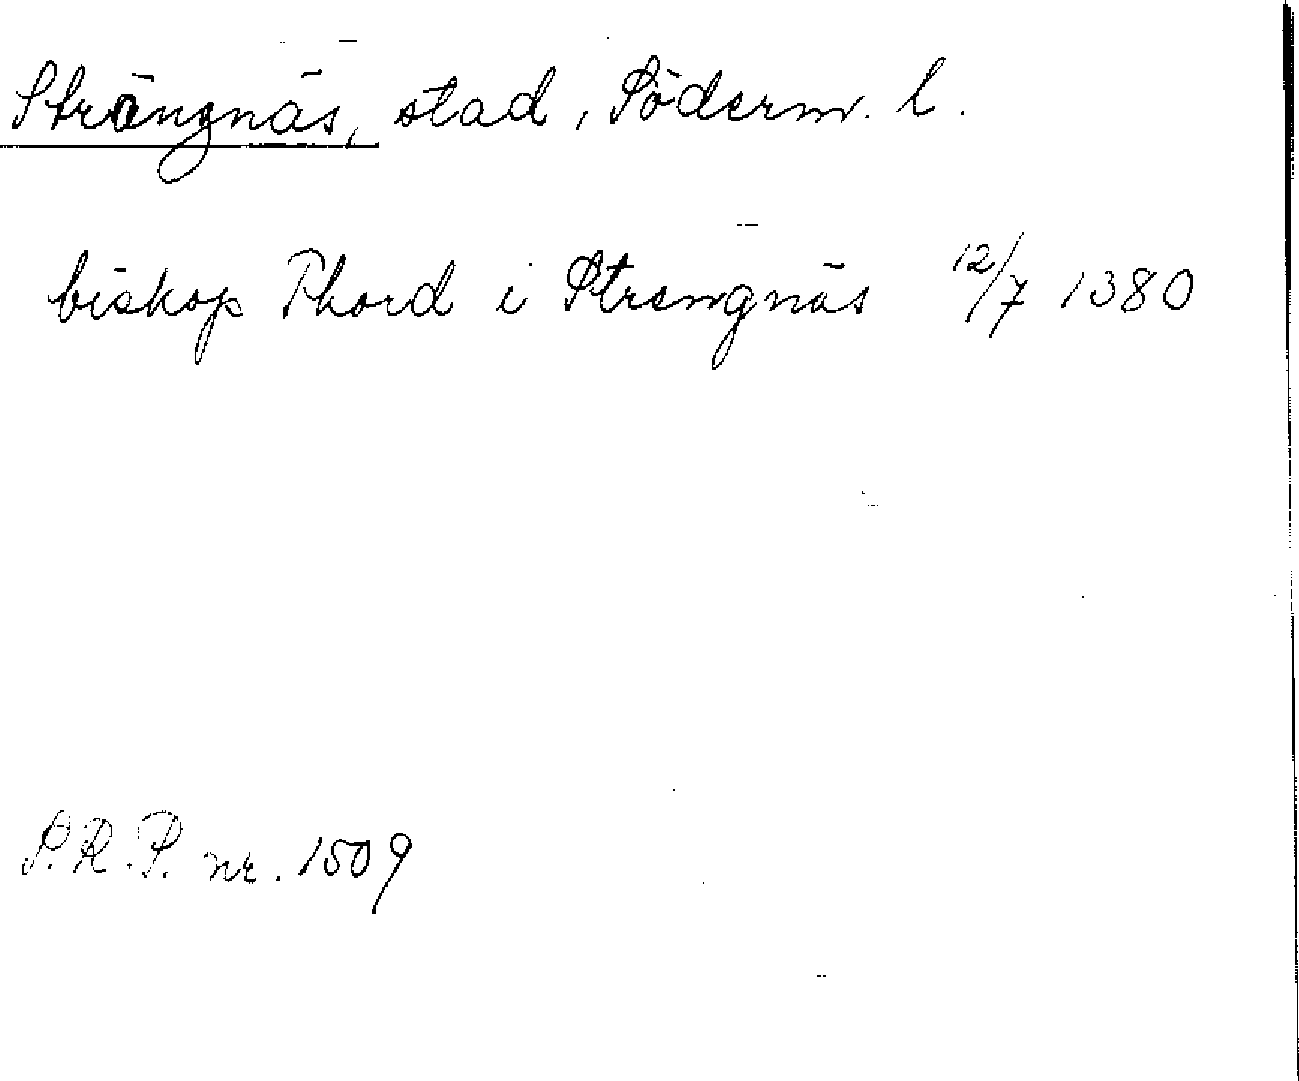 Strängnäs, stad, Söderm. l.
biskop Thord i Strengnäs 12/7 1380
S.R.P. nr. 1509